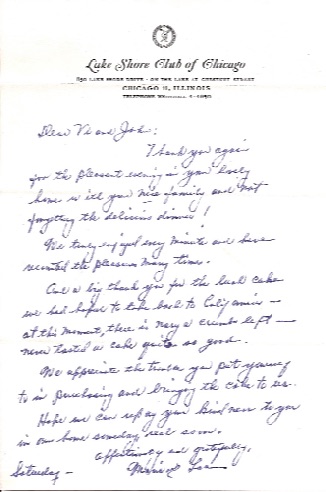 Lake Shore Club of Chicago
850 LAKE SHORE DRIVE · ON THE LAKE AT CHESTNUT STREET
CHICAGO 11, ILLINOIS
TELEPHONE
Dear Vi and John:
Thank you again
for the pleasant evening in your lovely
home with your nice family and not
forgetting the delicious dinner!
We truly enjoyed every minute and have
recounted the pleasures many times.
And a big thank you for the cake
we had hoped to take back to California —
at this moment, there is nary a crumb left —
never tasted a cake quite so good.
We appreciate the trouble you put yourself
to in purchasing and bringing the cake to us.
Hope we can repay your kindness to you
in our home someday real soon.
and gratefully,
Saturday —